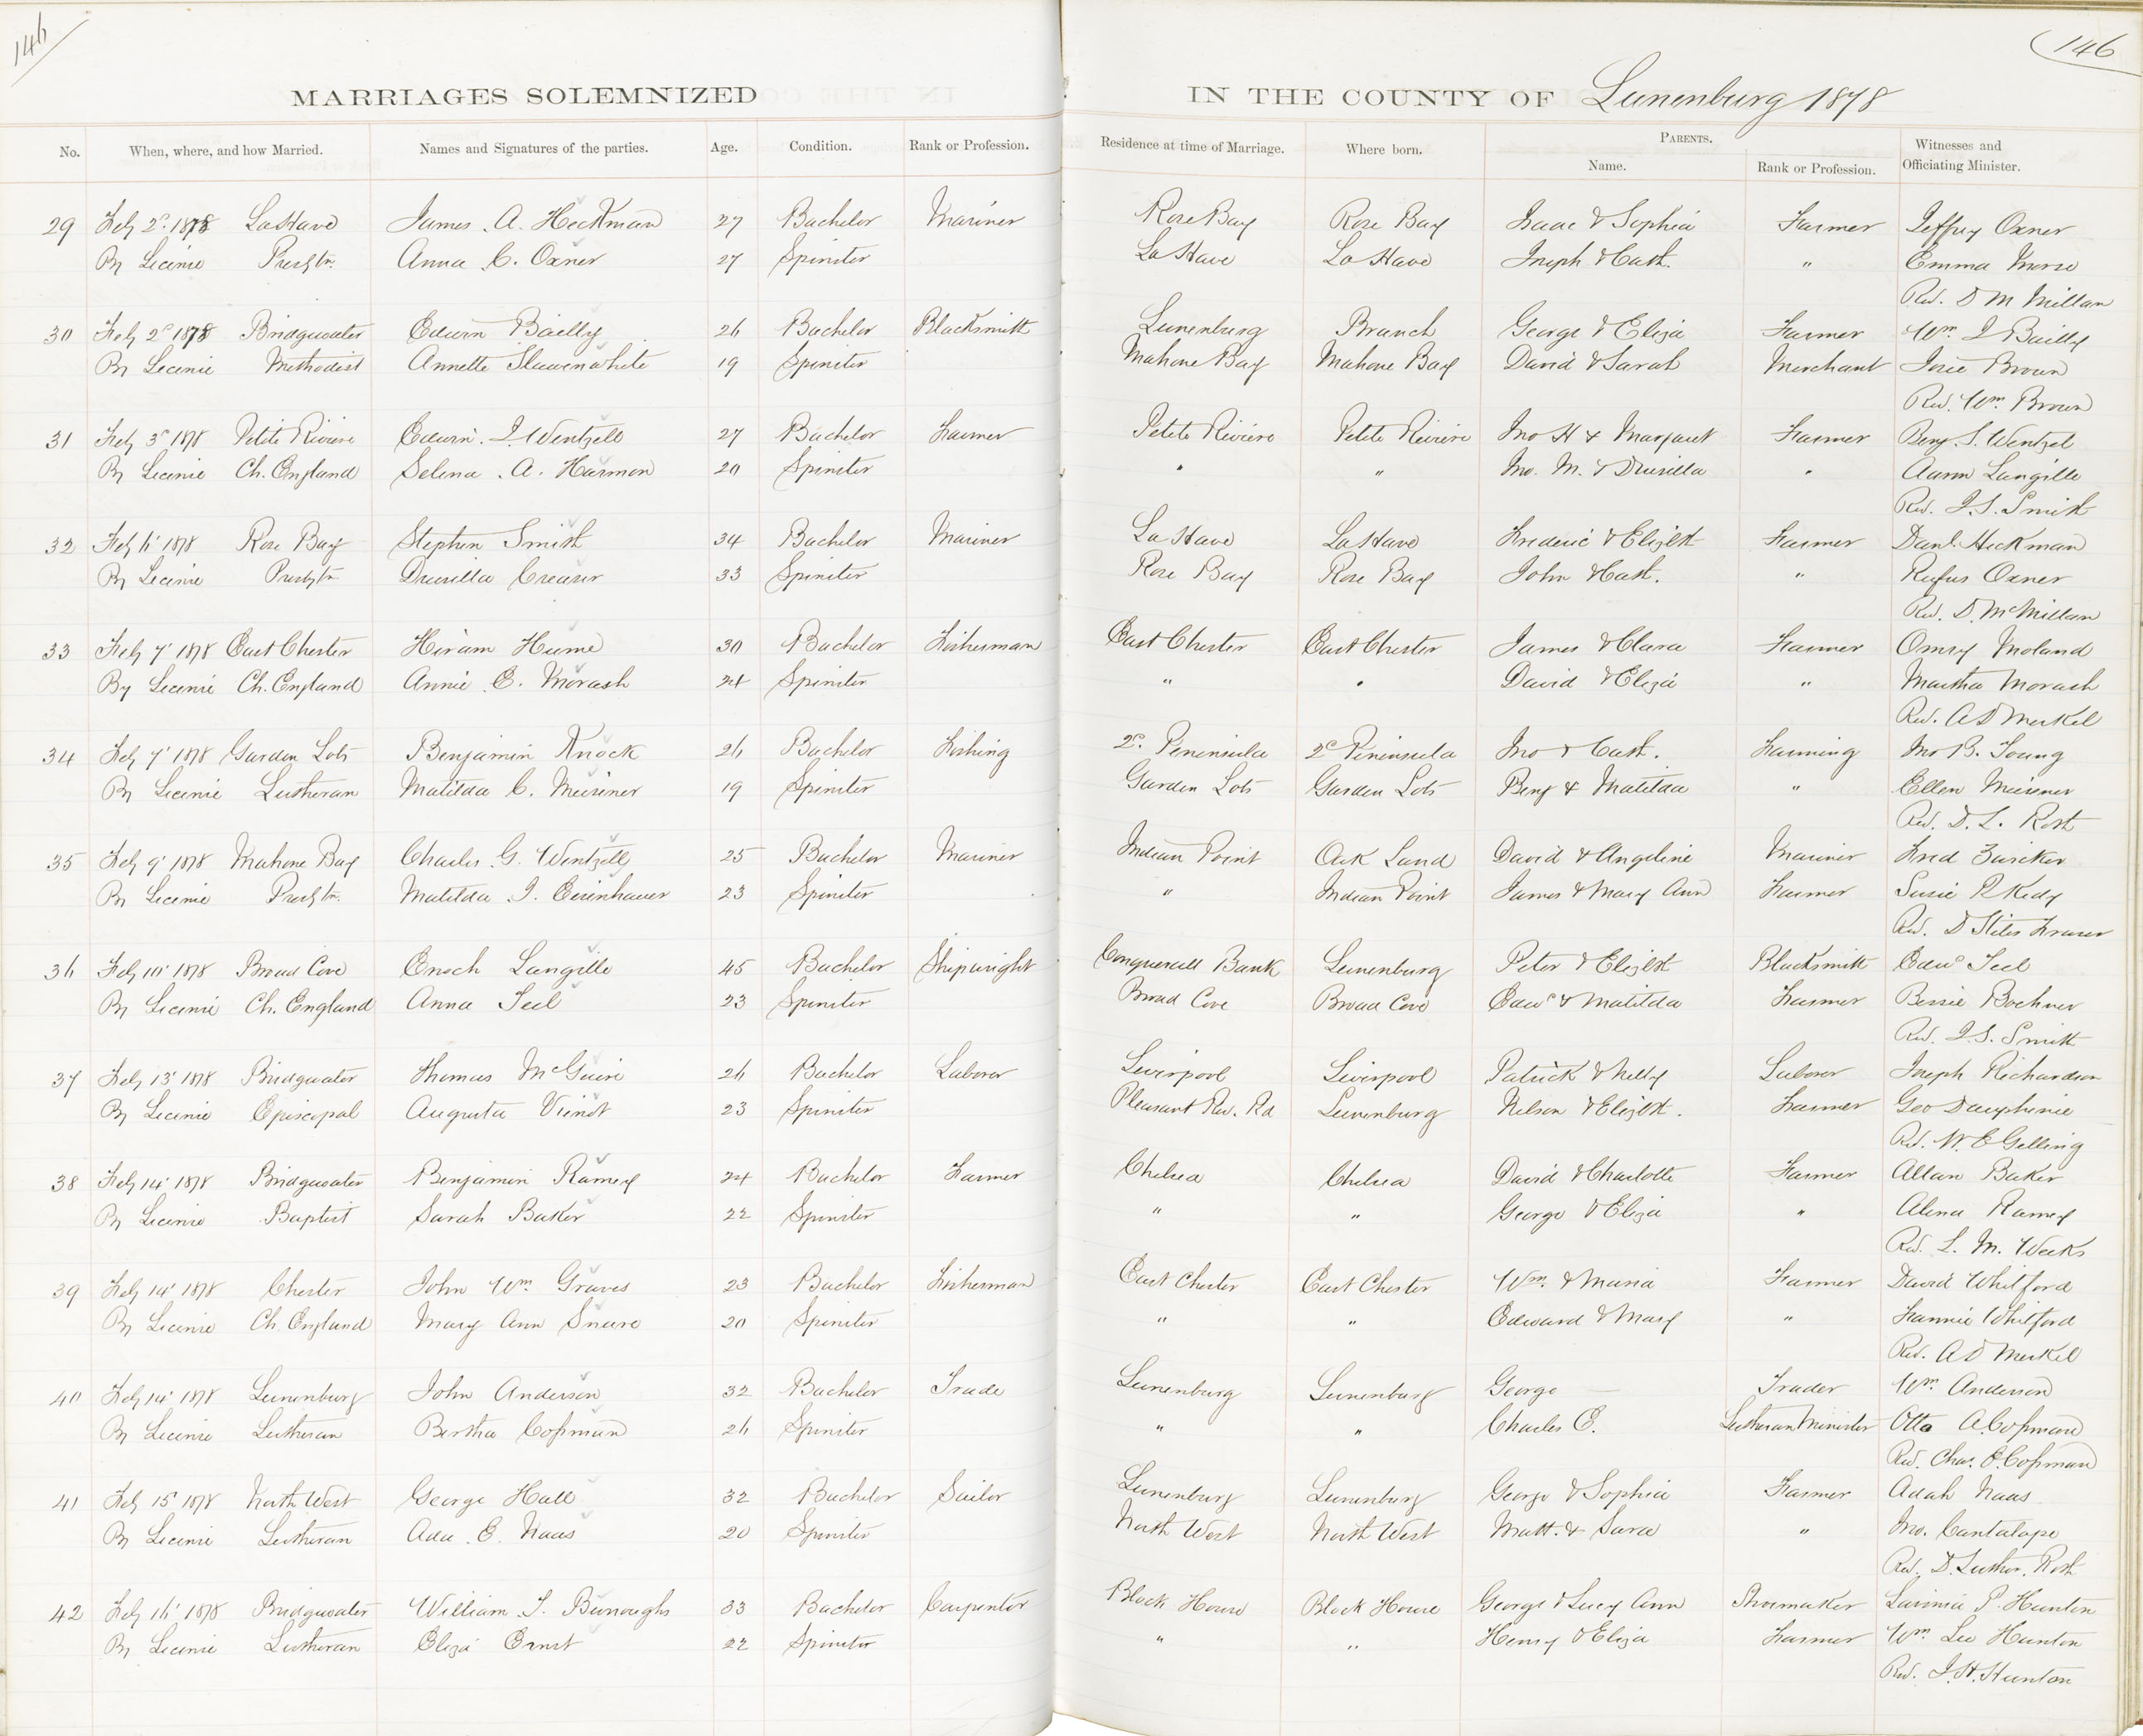 146
146
MARRIAGES SOLEMNIZED IN THE COUNTY OF Lunenburg 1878
No. When, where, and how Married. Names and Signatures of the parties. Age. Condition. Rank or Profession. Residence at time of Marriage. Where born. PARENTS. Name. Rank or Profession. Witnesses and Officiating Minister.
29 Feby 2d 1878 LaHave James A. Heckman 27 Bachelor Mariner Rose Bay Rose Bay Isaac & Sophia Farmer Jeffrey Oxner
By Licence Presbtn. Anna C. Oxner 27 Spinster LaHave LaHave Joseph & Cath. " Emma Morse
Rev. D M Millan
30 Feby 2d 1878 Bridgwater Edwin Bailly 26 Bachelor Blacksmith Lunenburg Branch George & Eliza Farmer Wm. J Bailly
By Licence Methodist Annette Slauenwhite 19 Spinster Mahone Bay Mahone Bay David & Sarah Merchant Josie Brown
Rev. Wm. Brown
31 Feby 3d 1878 Petite Riviere Edwin J. Wentzell 27 Bachelor Farmer Petite Riviere Petite Riviere Jno H & Margaret Farmer Benj. S. Wentzel
By Licence Ch. England Selena A. Harmon 20 Spinster " " Jno. M. & Drusilla " Aaron Langille
Rev. J. S. Smith
32 Feby 6' 1878 Rose Bay Stephen Smith 34 Bachelor Mariner LaHave LaHave Frederic & Elizbth Farmer Danl. Heckman
By Licence Presbytn Drusilla Creaser 33 Spinster Rose Bay Rose Bay John & Cath. " Rufus Oxner
Rev. D. McMillan
33 Feby 7' 1878 East Chester Hiram Hume 30 Bachelor Fisherman East Chester East Chester James & Clara Farmer Omry Moland
By Licence Ch. England Annie E. Morash 24 Spinster " " David & Eliza " Martha Morash
Rev. A D Merkel
34 Feby 7' 1878 Garden Lots Benjamin Knock 26 Bachelor Fishing 2d. Peninsula 2d Peninsula Jno & Cath. Farming Jno B. Young
By Licence Lutheran Matilda C. Meisener 19 Spinster Garden Lots Garden Lots Benj & Matilda " Ellen Meisener
Rev. D. L. Roth
35 Feby 9' 1878 Mahone Bay Charles G. Wentzell 25 Bachelor Mariner Indian Point Oak Land David & Angeline Mariner Fred Zwicker
By Licence Presbtn. Matilda J. Eisenhauer 23 Spinster " Indian Point James & Mary Ann Farmer Susie P Kedy
Rev. D Stiles Fraser
36 Feby 10' 1878 Broad Cove Enoch Langille 45 Bachelor Shipwright Conquerall Bank Lunenburg Peter & Elizbth Blacksmith Edwd Teel
By Licence Ch. England Anna Teel 23 Spinster Broad Cove Broad Cove Edwd & Matilda Farmer Bessie Bochner
Rev. J. S. Smith
37 Feby 13' 1878 Bridgwater Thomas McGuire 26 Bachelor Laborer Liverpool Liverpool Patrick & Nelly Laborer Joseph Richardson
By Licence Episcopal Augusta Vienot 23 Spinster Pleasant Riv. Rd Lunenburg Nelson & Elizbth. Farmer Geo Dauphinie
Rev. W. E Gelling
38 Feby 14' 1878 Bridgwater Benjamin Ramey 24 Bachelor Farmer Chelsea Chelsea David & Charlotte Farmer Allan Baker
By Licence Baptist Sarah Baker 22 Spinster " " George & Eliza " Alena Ramey
Rev. L. M. Weeks
39 Feby 14' 1878 Chester John Wm. Graves 23 Bachelor Fisherman East Chester East Chester Wm. & Maria Farmer David Whitford
By Licence Ch. England Mary Ann Snare 20 Spinster " " Edward & Mary " Fannie Whitford
Rev. A D Merkel
40 Feby 14' 1878 Lunenburg John Anderson 32 Bachelor Trade Lunenburg Lunenburg George — Trader Wm. Anderson
By Licence Lutheran Bertha Cossman 26 Spinster " " Charles E. Lutheran Minister Otto A. Cossman
Rev. Chas. E. Cossman
41 Feby 15' 1878 North West George Hall 32 Bachelor Sailor Lunenburg Lunenburg George & Sophia Farmer Adah Naas
By Licence Lutheran Ada E. Naas 20 Spinster North West North West Matt. & Sara " Jno. Cantalope
Rev. D. Luther Roth
42 Feby 16' 1878 Bridgwater William T. Burroughs 33 Bachelor Carpenter Block House Block House George & Lucy Ann Shoemaker Lavinia P. Hunton
By Licence Lutheran Eliza Ernst 22 Spinster " " Henry & Eliza Farmer Wm. Lee Hunton
Rev. J. H. Hunton